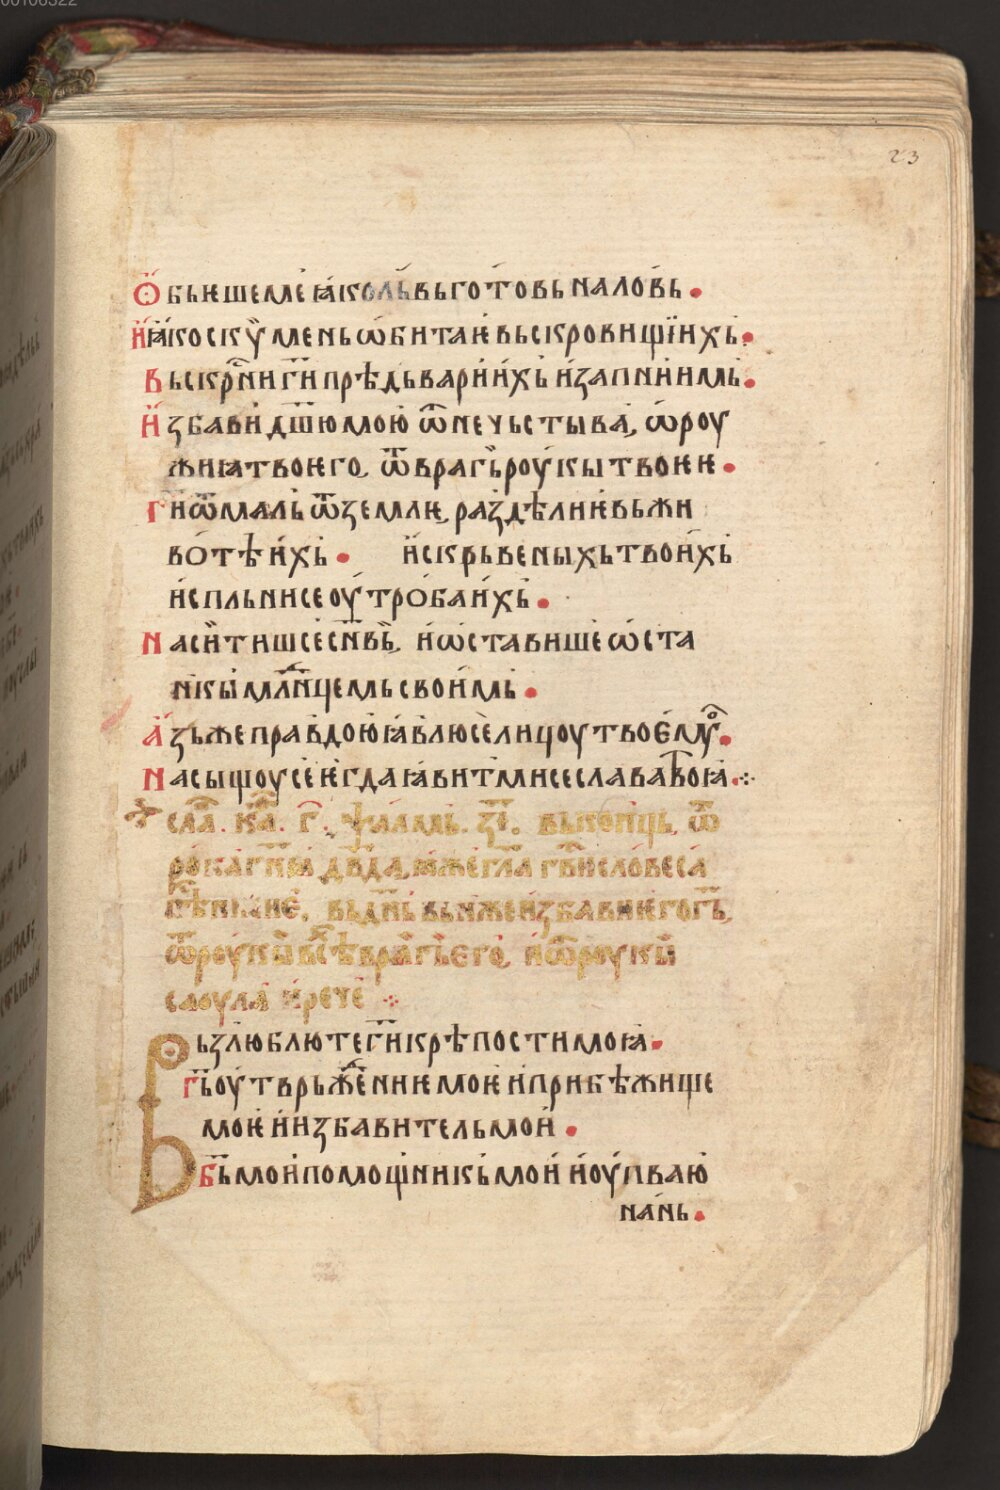 00106322
23
Ѻ҆бьѥшеме꙯ ꙗ҆ко льв꙯ь готовь на ловь •
и҆ ꙗ҆ко скѵ҆мень ѡбитаѥ вь скровищїихь •
вьскрⷭ҇ни г҃и прѣдьвари и҆хь и҆ запни имь •
и҆збави дш҃ю мою ѿ нечьстыва, ѡ҆роу
жиꙗ твоѥго, ѿ врагь роу҆кы твоѥѥ •
г҃и ѿ маль ѿ землѥ, раздѣли ѥ вь жи
вотѣ и҆хь • и҆ скрьвеныхь твоихь
и҆спльни се оу҆троба и҆хь •
насїтише се сн҃вь, и҆ ѡ҆ставише ѡ҆ста
нкы мл҃нцемь своимь •
а҆зь же правдою ꙗ҆влю се лицоу твоѥмꙋ •
насыщоу се ѥгда ꙗ҆вит ми се слава твоꙗ ·:·
сла . ка . г҃ . ѱалмь . з҃і . вь коньць, ѿ
рока г҃нꙗ дв҃да, ꙗже гл҃а г҃ви словеса
пѣниѥ, вь дн҃ь вь н҆же избави ѥго г҃ь,
ѿ роукы всѣ врагь его, и ѿ роукы
саоула и рече ·:·
Вьзлюблю те г҃и крѣпости моꙗ •
г҃ь оу҆тврьждениѥ моѥ и҆ прибѣжище
моѥ и҆ избавитель мои •
б҃ь мои помощникь мои и҆ оу҆пваю
на нь •